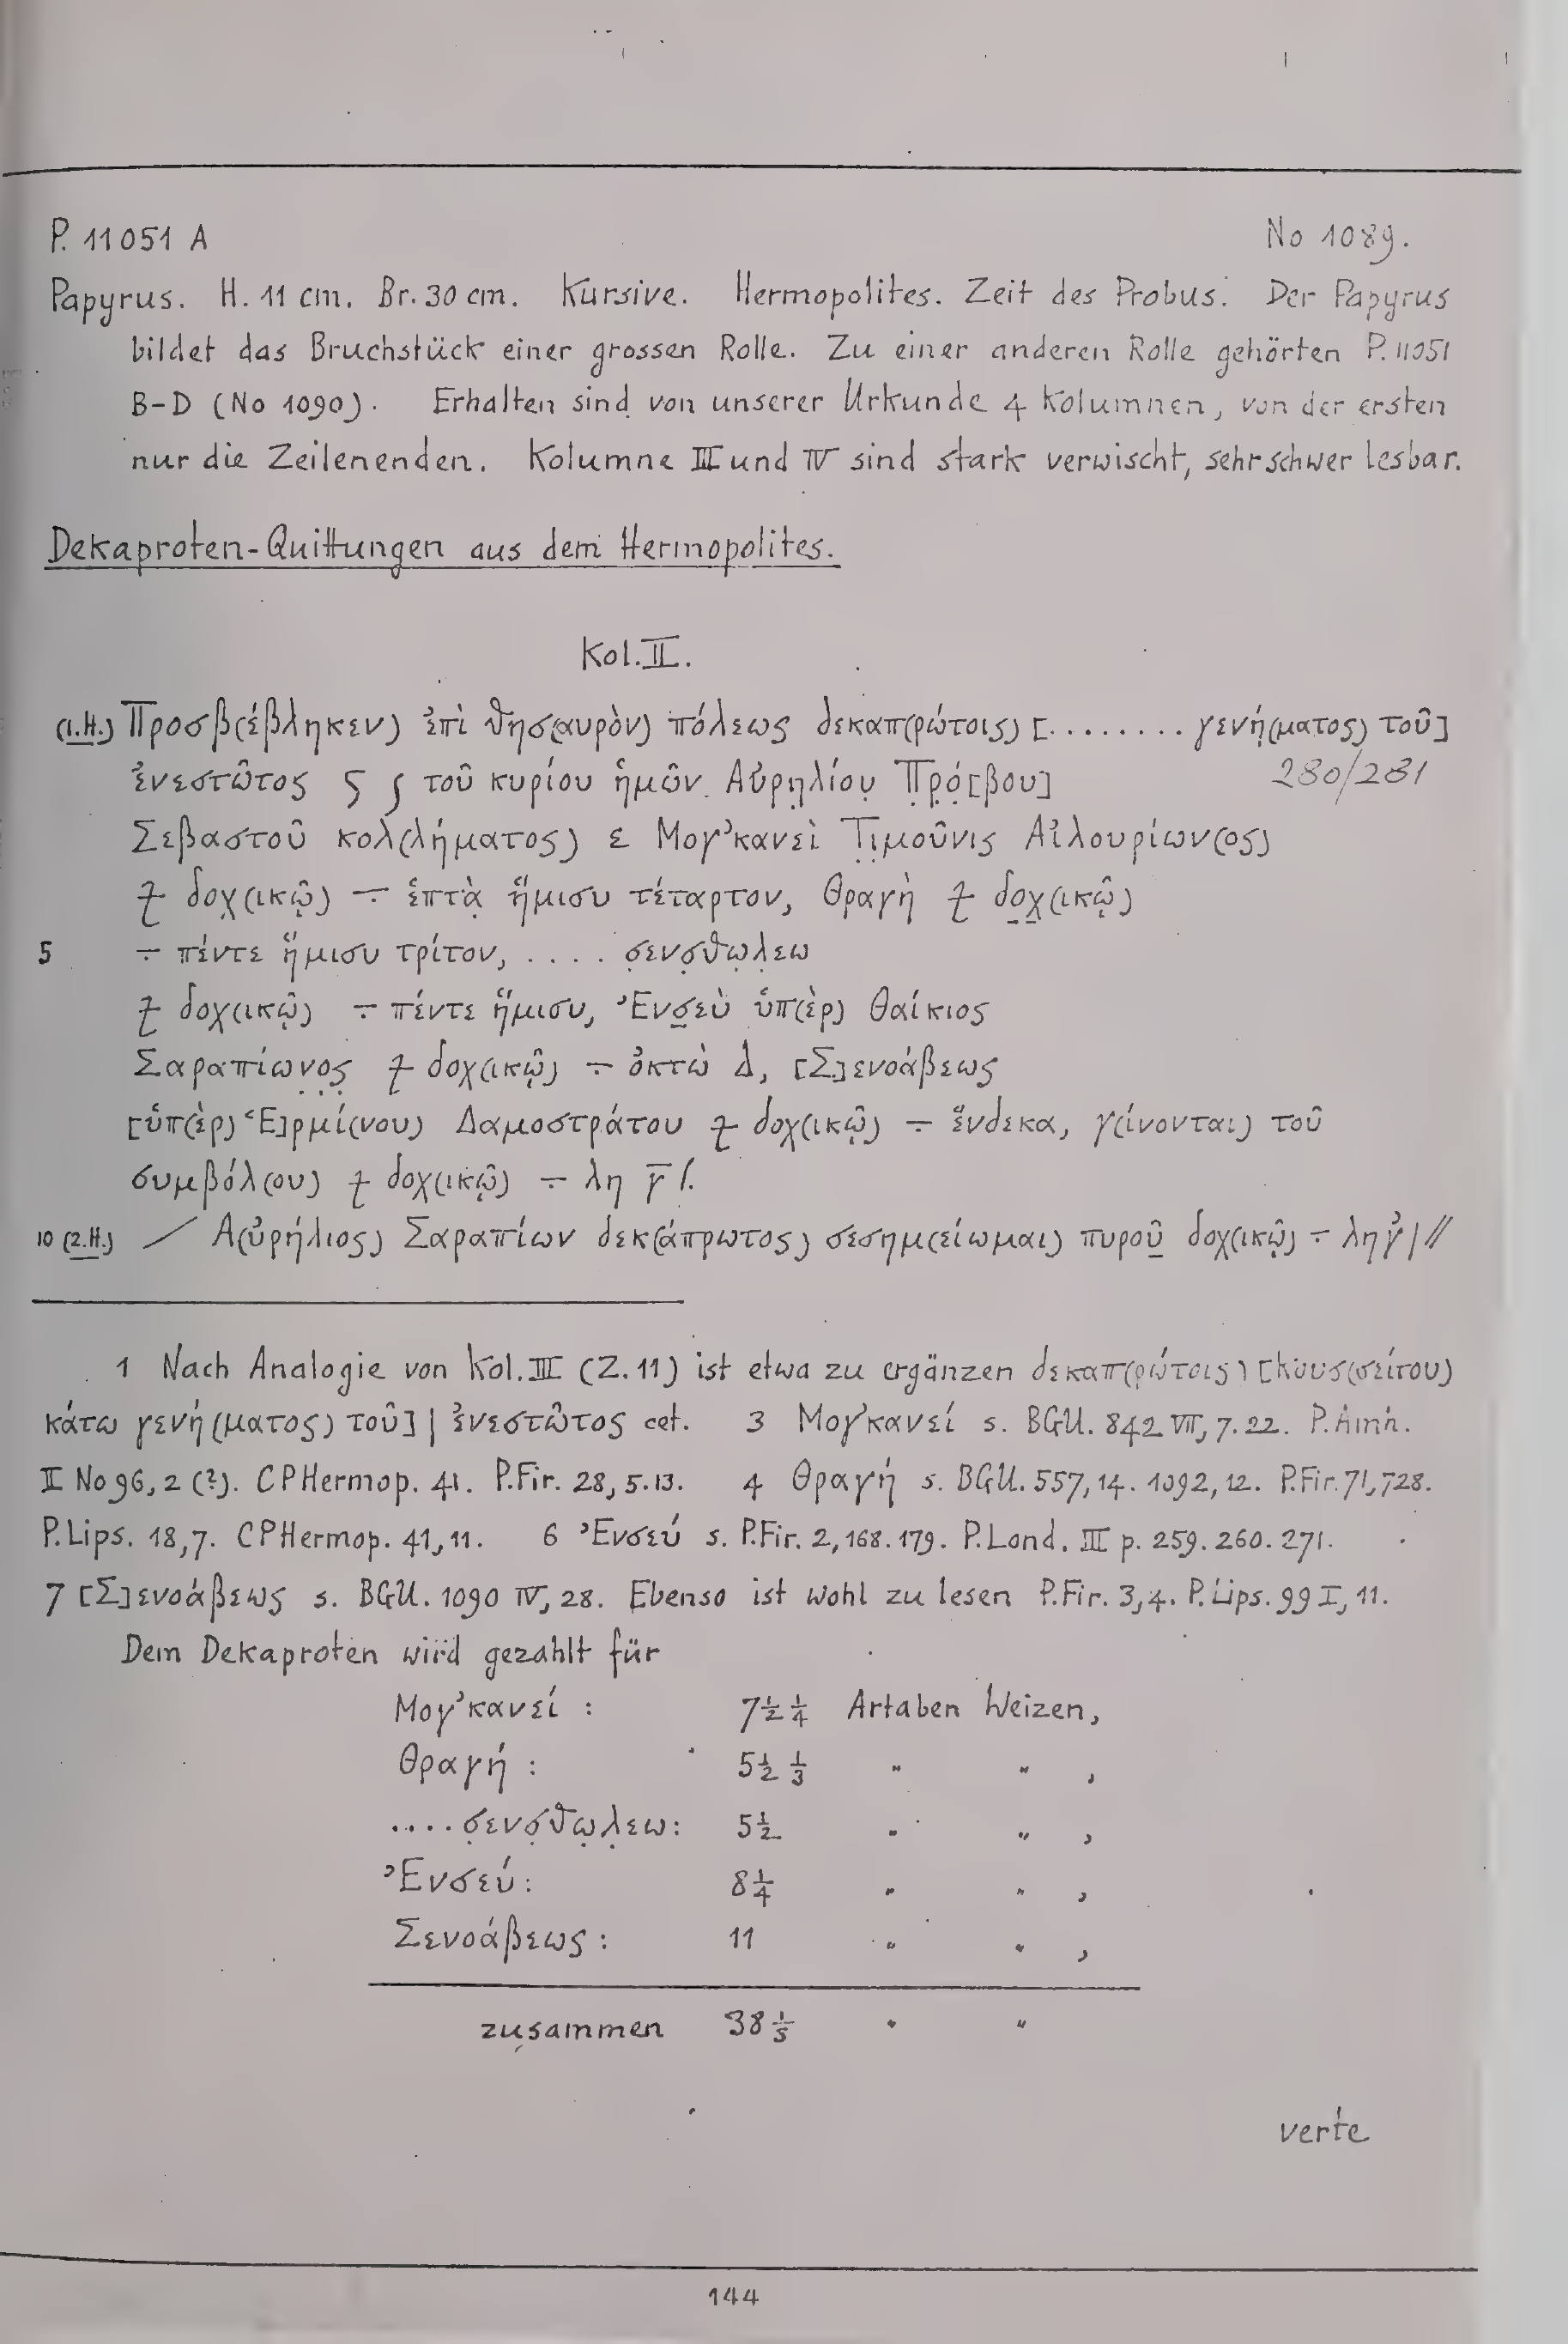 P. 11051 A No 1089.
Papyrus. H. 11 cm. Br. 30 cm. Kursive. Hermopolites. Zeit des Probus. Der Papyrus
bildet das Bruchstück einer grossen Rolle. Zu einer anderen Rolle gehörten P. 11051
B-D (No 1090). Erhalten sind von unserer Urkunde 4 Kolumnen, von der ersten
nur die Zeilenenden. Kolumne III und IV sind stark verwischt, sehr schwer lesbar.
Dekaproten-Quittungen aus dem Hermopolites.
Kol. II.
(1.H.) Προσβ(έβληκεν) ἐπὶ θησ(αυρὸν) πόλεως δεκαπ(ρώτοις) [........ γενή(ματος) τοῦ]
ἐνεστῶτος ϛ ʃ τοῦ κυρίου ἡμῶν Αὐρηλίου Πρό[βου] 280/281
Σεβαστοῦ κολ(λήματος) ε Μογ'κανεὶ Τιμοῦνις Αἰλουρίων(ος)
𐅝 δοχ(ικῷ) ÷ ἑπτὰ ἥμισυ τέταρτον, Θραγὴ 𐅝 δοχ(ικῷ)
5 ÷ πέντε ἥμισυ τρίτον, .... σενσθωλεω
𐅝 δοχ(ικῷ) ÷ πέντε ἥμισυ, Ἐνσεὺ ὑπ(ὲρ) Θαίκιος
Σαραπίωνος 𐅝 δοχ(ικῷ) ÷ ὀκτὼ Δ, [Σ]ενοάβεως
[ὑπ(ὲρ) Ἑ]ρμί(νου) Δαμοστράτου 𐅝 δοχ(ικῷ) ÷ ἕνδεκα, γ(ίνονται) τοῦ
συμβόλ(ου) 𐅝 δοχ(ικῷ) ÷ λη γ̅ /.
10 (2.H.) / Α(ὐρήλιος) Σαραπίων δεκ(άπρωτος) σεσημ(είωμαι) πυροῦ δοχ(ικῷ) ÷ λη γ' | //
1 Nach Analogie von Kol. III (Z. 11) ist etwa zu ergänzen δεκαπ(ρώτοις) [Κουσ(σείτου)
κάτω γενή(ματος) τοῦ] | ἐνεστῶτος cet. 3 Μογ'κανεί s. BGU. 842 VII, 7. 22. P. Amh.
II No 96, 2 (?). CPHermop. 41. P. Fir. 28, 5. 13. 4 Θραγή s. BGU. 557, 14. 1092, 12. P. Fir. 71, 728.
P. Lips. 18, 7. CPHermop. 41, 11. 6 Ἐνσεύ s. P. Fir. 2, 168. 179. P. Lond. III p. 259. 260. 271.
7 [Σ]ενοάβεως s. BGU. 1090 IV, 28. Ebenso ist wohl zu lesen P. Fir. 3, 4. P. Lips. 99 I, 11.
Dem Dekaproten wird gezahlt für
Μογ'κανεί : 7 ½ ¼ Artaben Weizen,
Θραγή : 5 ½ ⅓ " " ,
.... σενσθωλεω : 5 ½ " " ,
Ἐνσεύ : 8 ¼ " " ,
Σενοάβεως : 11 " " ,
zusammen 38 ⅓ " "
verte
144